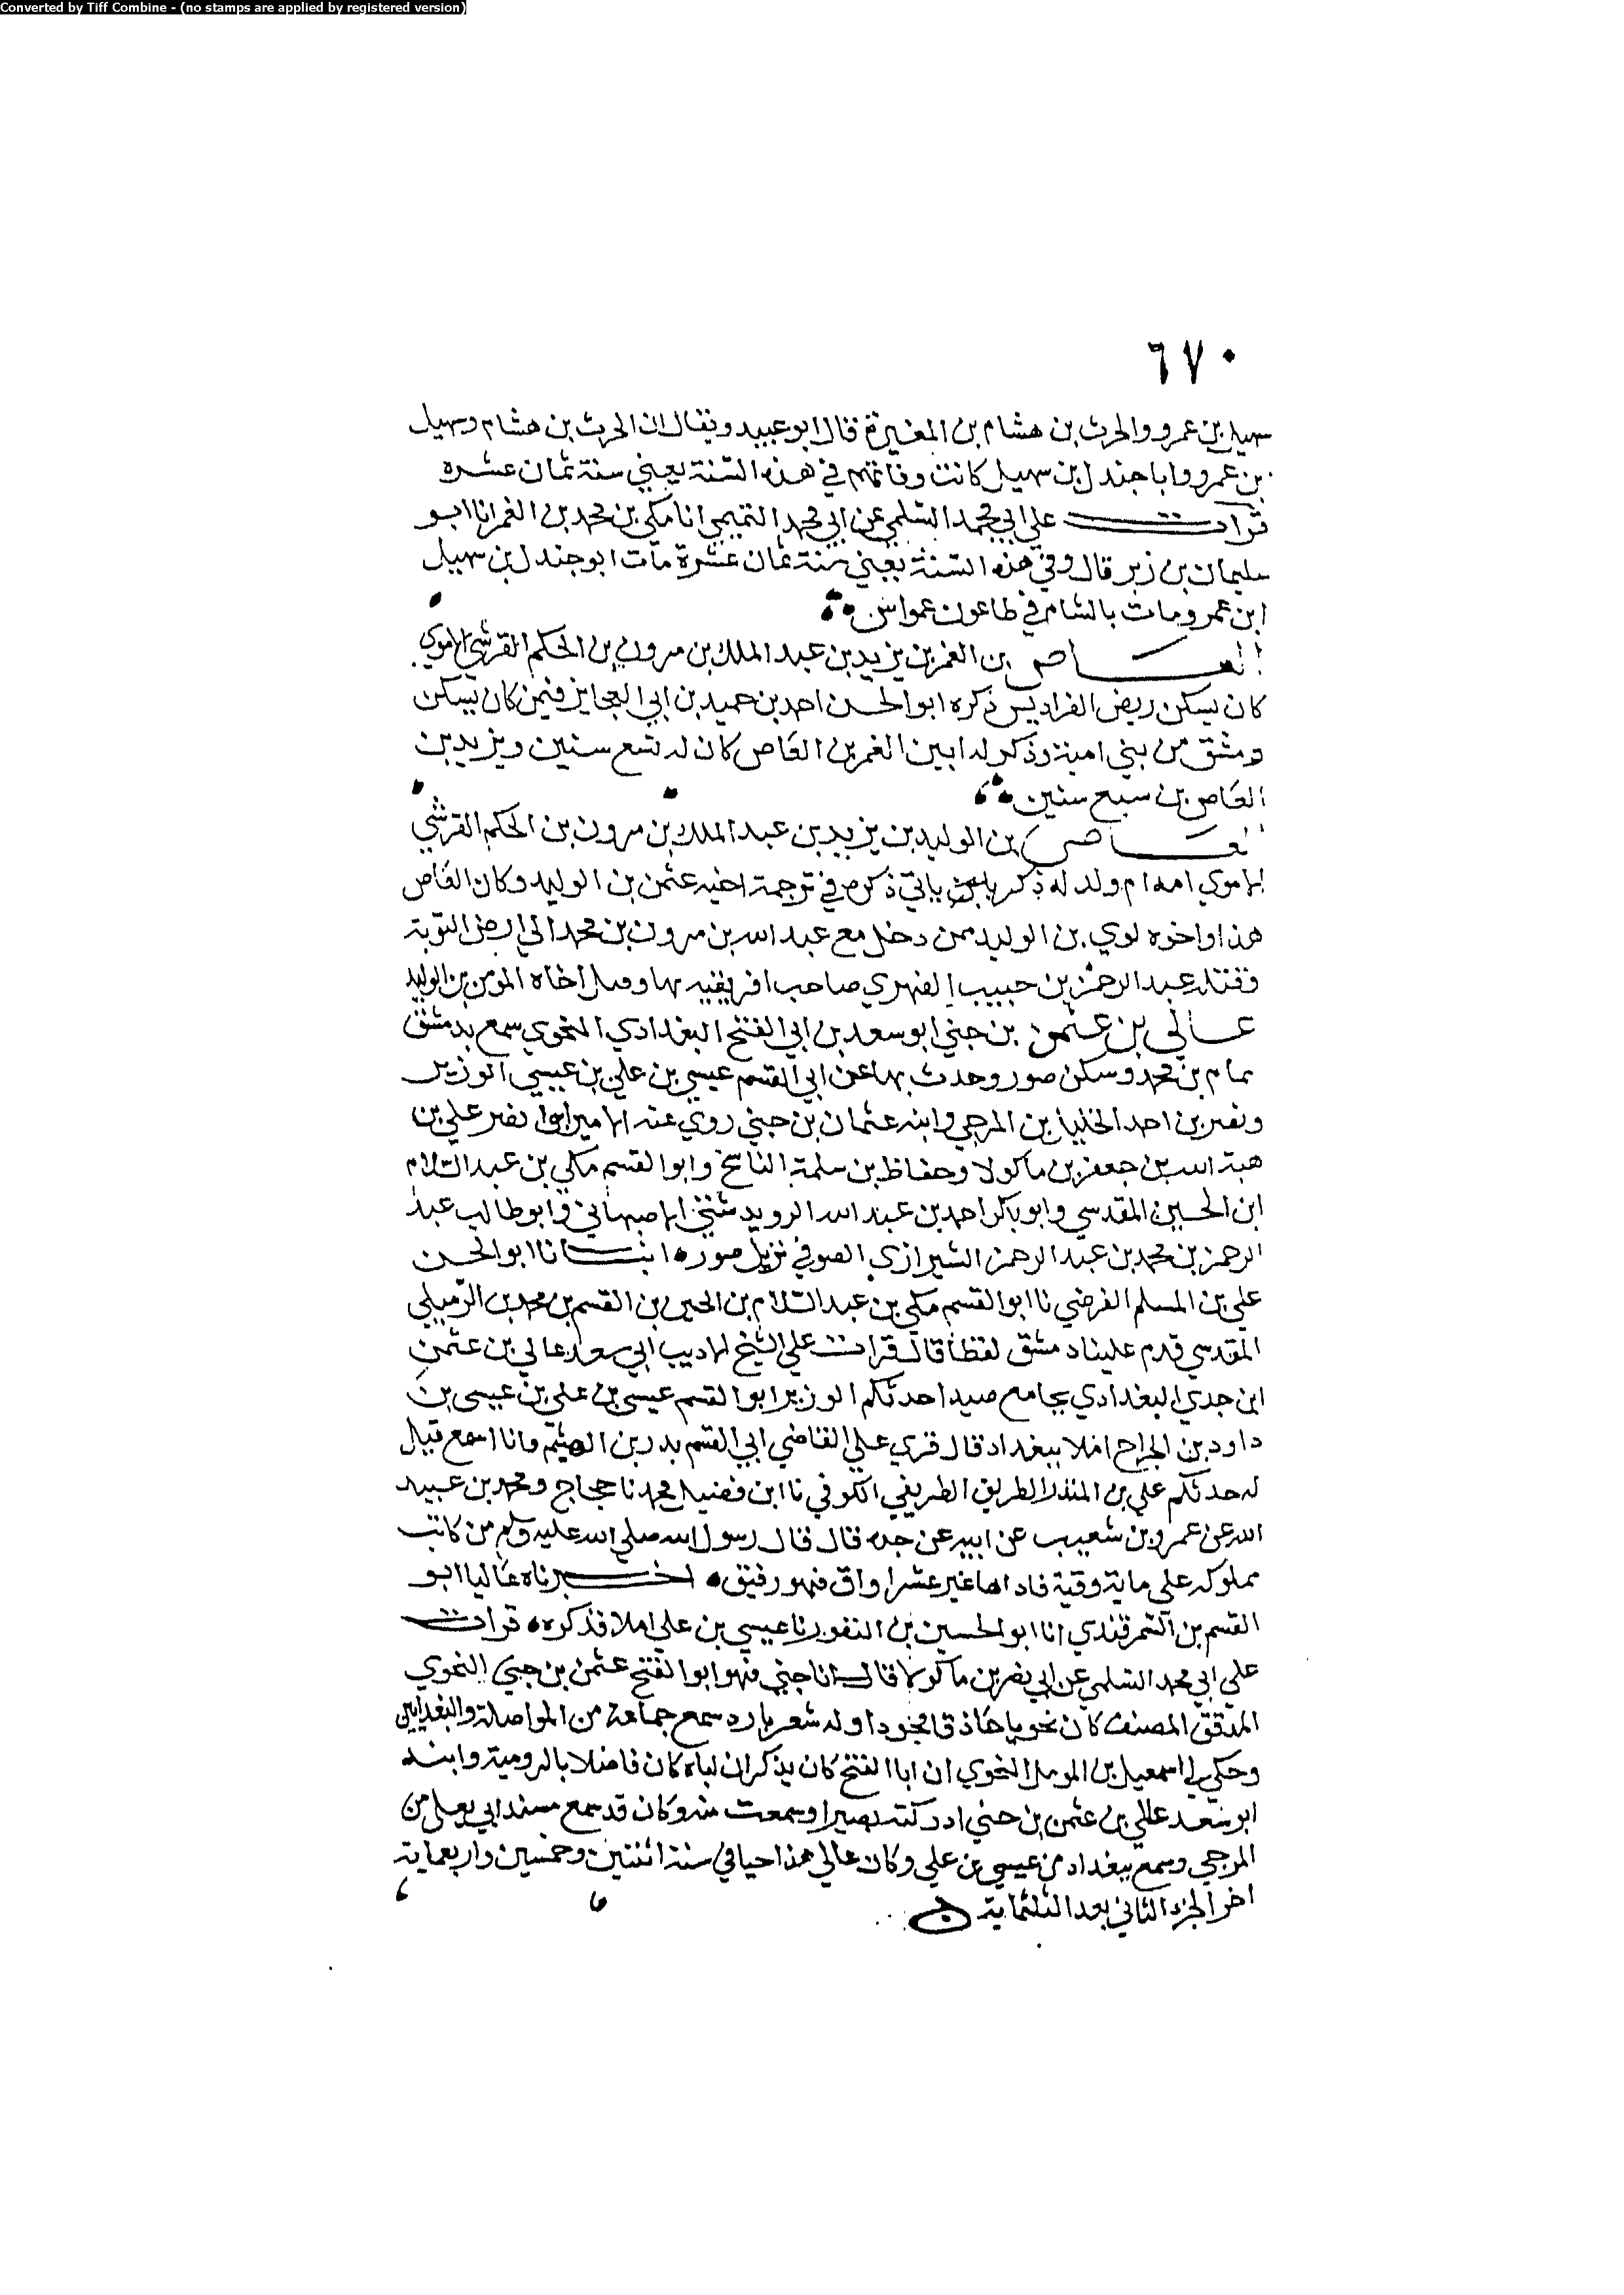 Converted by Tiff Combine - (no stamps are applied by registered version)
٦٧٠
سهيل بن عمرو والحرث بن هشام بن المغيرة قال ابو عبيد ويقال ان الحرث بن هشام وسهيل
بن عمرو وابا جندل بن سهيل كانت وفاتهم في هذه السنة يعني سنة ثمان عشره
قرات علي ابي محمد السلمي عن ابي محمد التميمي انا مكي بن محمد بن الغمر انا ابو
سليمان بن زبر قال وفي هذه السنة يعني سنة ثمان عشرة مات ابو جندل بن سهيل
ابن عمرو ومات بالشام في طاعون عمواس
العاص بن الغمر بن يزيد بن عبد الملك بن مرون بن الحكم القرشي الاموي
كان يسكن ربض الفراديس ذكره ابو الحسن احمد بن حميد بن ابي العجايز فيمن كان يسكن
دمشق من بني امية وذكر له ابين الغمر بن العاص كان له تسع سنين ويزيد بن
العاص بن سبع سنين
العاص بن الوليد بن يزيد بن عبد الملك بن مرون بن الحكم القرشي
الاموي امه ام ولد له ذكر ياتي ذكره في ترجمة اخيه عثمن بن الوليد وكان العاص
هذا واخوه لوي بن الوليد ممن دخل مع عبد الله بن مرون بن محمد الي ارض النوبة
فقتله عبد الرحمن بن حبيب الفهري صاحب افريقيه بها وقتل اخاه المومن بن الوليد
عالي بن عثمن بن جني ابو سعد بن ابي الفتح البغدادي النحوي سمع بدمشق
تمام بن محمد وسكن صور وحدث بها عن ابي القسم عيسي بن علي بن عيسي الوزير
ونصر بن احمد الخليل بن المرجي وابنه عثمان بن جني روي عنه الامير ابو نصر علي بن
هبة الله بن جعفر بن ماكولا وحفاظ بن سلمة الناسخ وابو القسم مكي بن عبد السلام
ابن الحسين المقدسي وابو بكر احمد بن عبد الله الرويدشتي الاصبهاني وابو طالب عبد
الرحمن بن محمد بن عبد الرحمن الشيرازي الصوفي نزيل صور انبانا ابو الحسن
علي بن المسلم الفرضي نا ابو القسم مكي بن عبد السلام بن الحسين بن القسم بن محمد بن الرميلي
المقدسي قدم علينا دمشق لفظا قال قرات علي الشيخ الاديب ابي سعد عالي بن عثمن
ابن جدي البغدادي بجامع صيدا حدثكم الوزير ابو القسم عيسي بن علي بن عيسى بن
داود بن الجراح املا ببغداد قال قري علي القاضي ابي القسم بدر بن الهيثم وانا اسمع قيل
له حدثكم علي بن المنذر الطريق الطريفي الكوفي نا ابن فضيل محمد نا حجاج ومحمد بن عبيد
الله عن عمرو بن شعيب عن ابيه عن جده قال قال رسول الله صلي الله عليه وسلم من كاتب
مملوكه علي ماية وقية فاداها غير عشر اواق فهو رقيق اخبرناه عاليا ابو
القسم بن السمرقندي انا ابو الحسين بن النقور نا عيسي بن علي املا فذكره قرات
علي ابي محمد السلمي عن ابي نصر بن ماكولا قال انا جني فهو ابو الفتح عثمن بن جني النحوي
المدقق المصنف كان نحويا حاذقا مجودا وله شعر بارد سمع جماعة من المواصلة والبغداديين
وحكي لي اسمعيل بن المومل النحوي ان ابا الفتح كان يذكر ان اباه كان فاضلا بالرومية وابنه
ابو سعد عالي بن عثمن بن جني ادركته بصيرا وسمعت منه وكان قد سمع مسند ابي يعلي من
المرجي وسمع ببغداد من عيسي بن علي وكان عالي هذا حيا في سنة اثنتين وخمسين واربعماية
اخر الجزء الثاني بعد الثلثماية